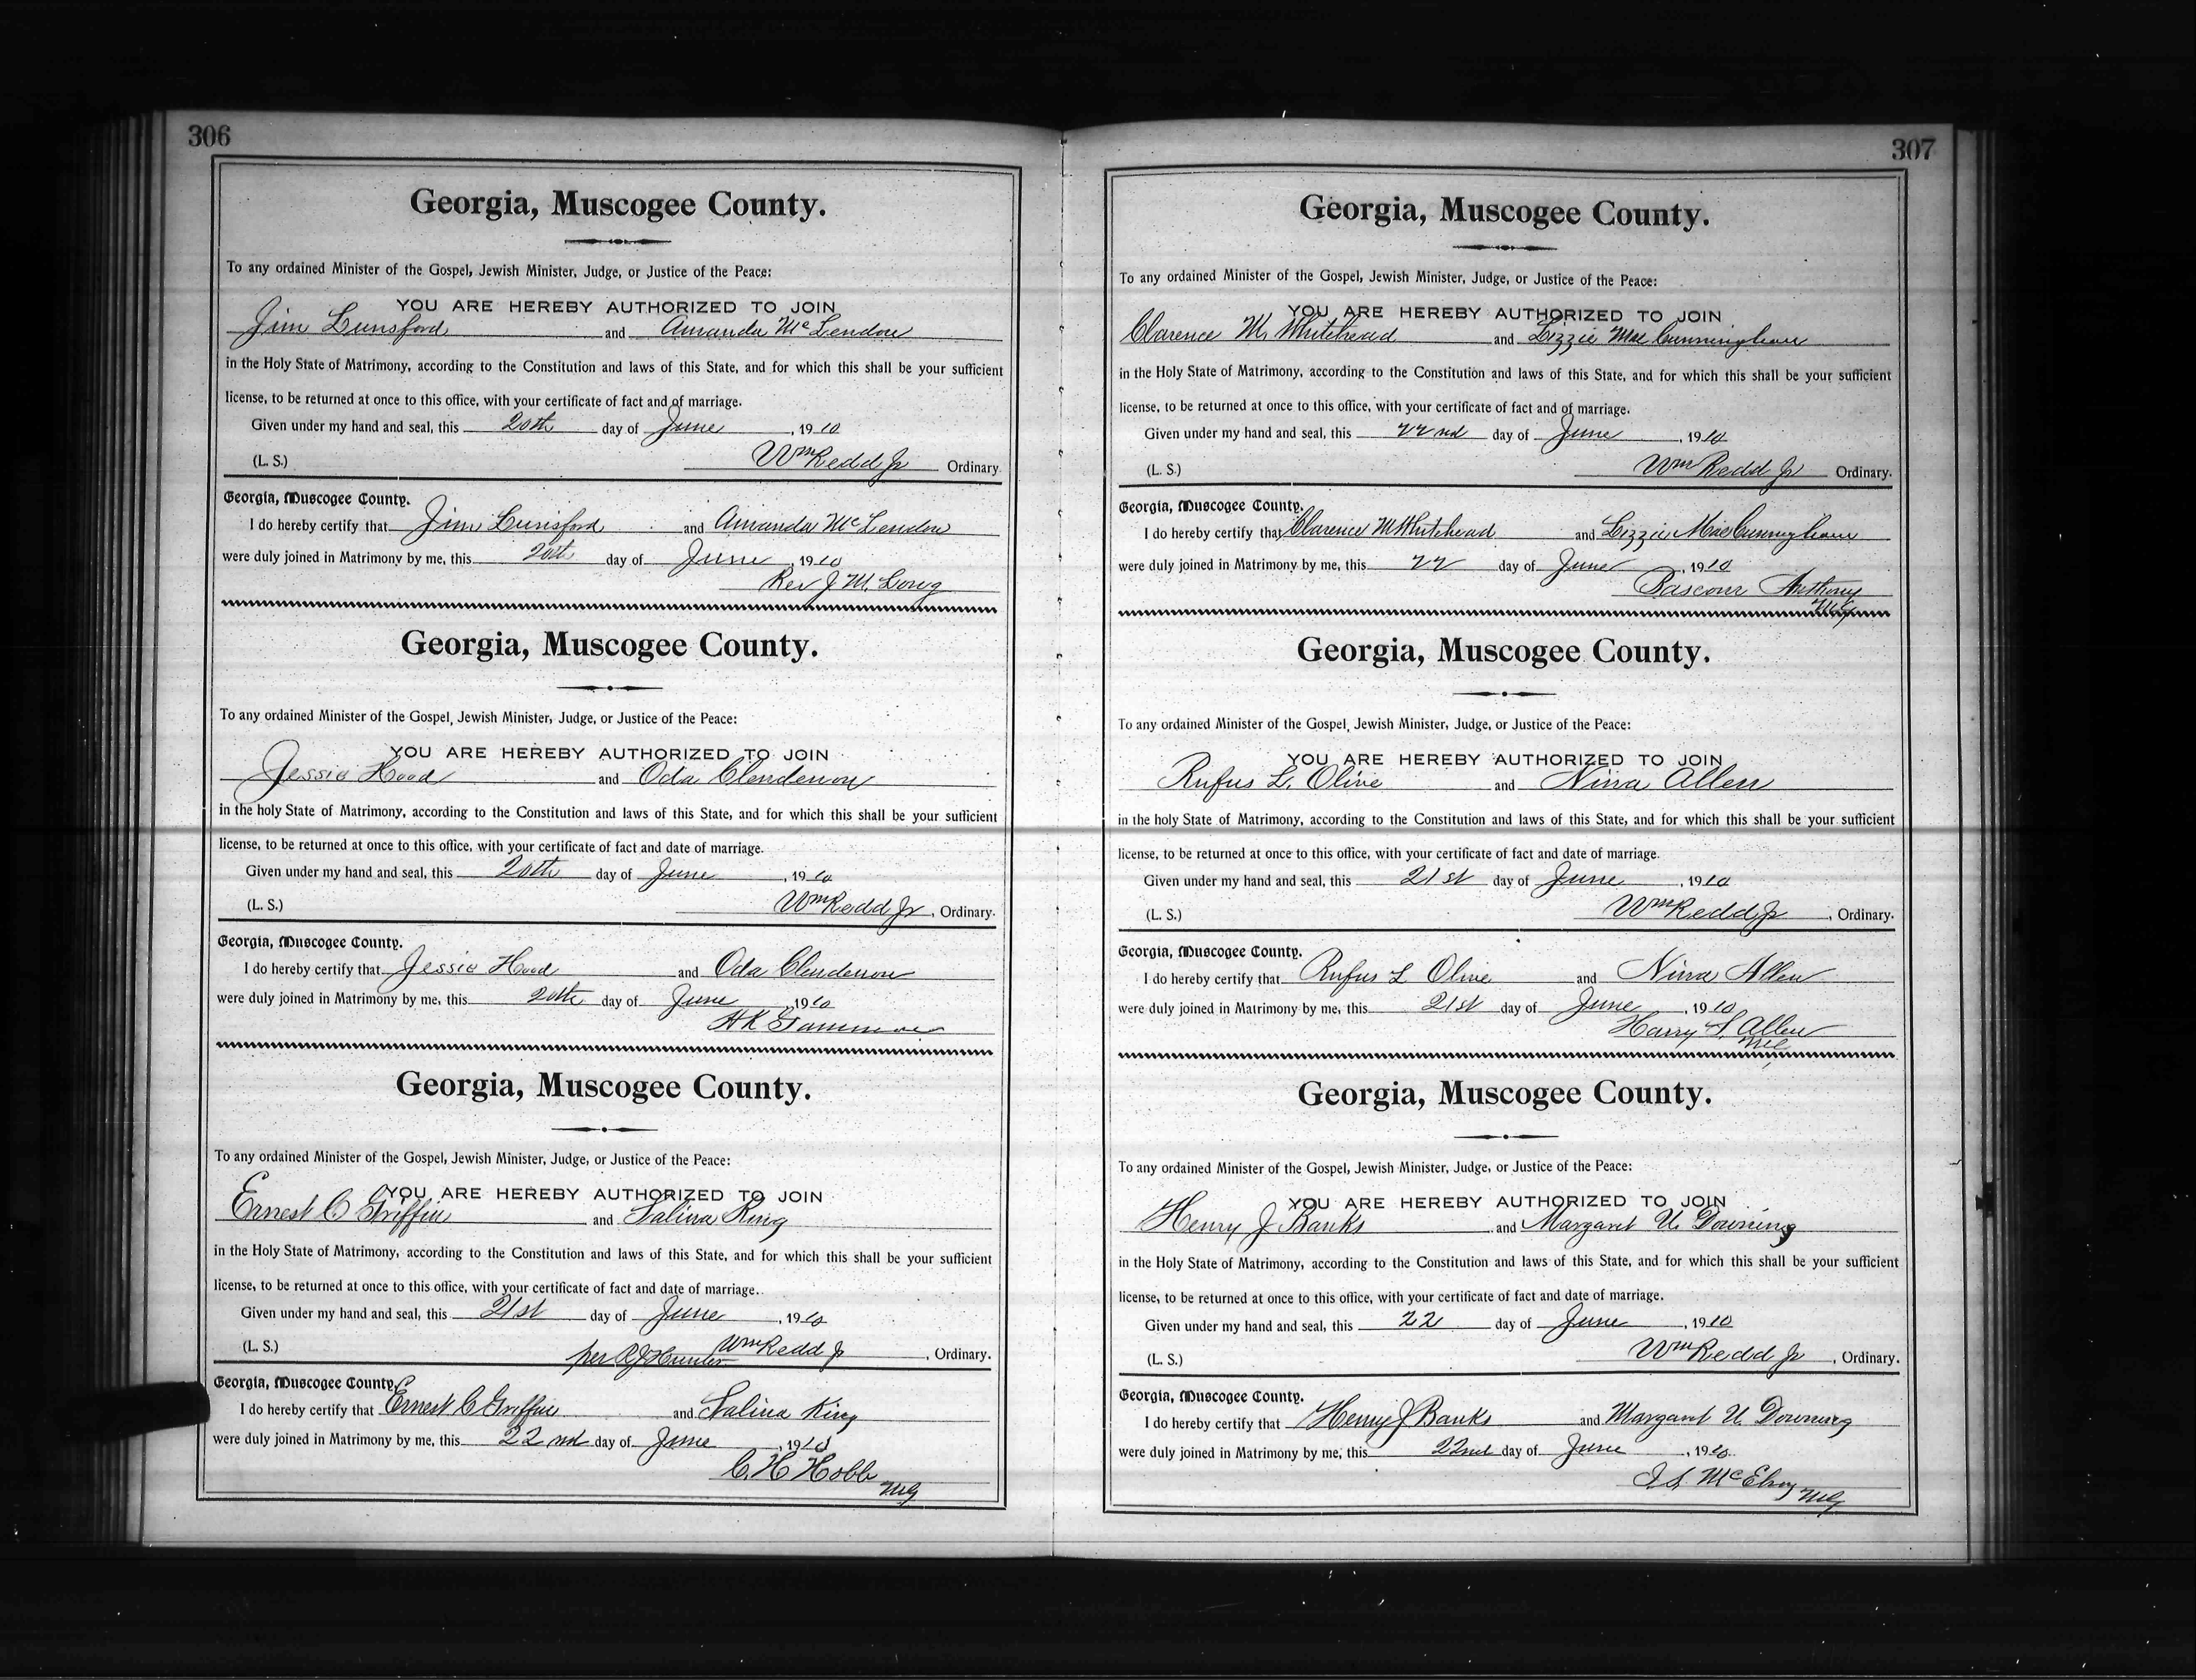 306
Georgia, Muscogee County.
To any ordained Minister of the Gospel, Jewish Minister, Judge, or Justice of the Peace:
YOU ARE HEREBY AUTHORIZED TO JOIN
Jim Lunsford and Amanda McLendon
in the Holy State of Matrimony, according to the Constitution and laws of this State, and for which this shall be your sufficient
license, to be returned at once to this office, with your certificate of fact and of marriage.
Given under my hand and seal, this 20th day of June, 1910
(L. S.) Wm Redd Jr Ordinary.
Georgia, Muscogee County.
I do hereby certify that Jim Lunsford and Amanda McLendon
were duly joined in Matrimony by me, this 20th day of June, 1910
Rev J. M. Long
Georgia, Muscogee County.
To any ordained Minister of the Gospel, Jewish Minister, Judge, or Justice of the Peace:
YOU ARE HEREBY AUTHORIZED TO JOIN
Jessie Hood and Oda Clendenon
in the holy State of Matrimony, according to the Constitution and laws of this State, and for which this shall be your sufficient
license, to be returned at once to this office, with your certificate of fact and date of marriage.
Given under my hand and seal, this 20th day of June, 1910
(L. S.) Wm Redd Jr, Ordinary.
Georgia, Muscogee County.
I do hereby certify that Jessie Hood and Oda Clendenon
were duly joined in Matrimony by me, this 20th day of June, 1910
H K
Georgia, Muscogee County.
To any ordained Minister of the Gospel, Jewish Minister, Judge, or Justice of the Peace:
YOU ARE HEREBY AUTHORIZED TO JOIN
Ernest C. Griffin and Salina King
in the Holy State of Matrimony, according to the Constitution and laws of this State, and for which this shall be your sufficient
license, to be returned at once to this office, with your certificate of fact and date of marriage.
Given under my hand and seal, this 21st day of June, 1910
(L. S.) per Hunter Wm Redd Jr, Ordinary.
Georgia, Muscogee County.
I do hereby certify that Ernest C Griffin and Salina King
were duly joined in Matrimony by me, this 22nd day of June, 1910
C. H Hobb
MG
307
Georgia, Muscogee County.
To any ordained Minister of the Gospel, Jewish Minister, Judge, or Justice of the Peace:
YOU ARE HEREBY AUTHORIZED TO JOIN
Clarence M. Whitehead and Lizzie Mae Cunningham
in the Holy State of Matrimony, according to the Constitution and laws of this State, and for which this shall be your sufficient
license, to be returned at once to this office, with your certificate of fact and of marriage.
Given under my hand and seal, this 22nd day of June, 1910
(L. S.) Wm Redd Jr Ordinary.
Georgia, Muscogee County.
I do hereby certify that Clarence M Whitehead and Lizzie Mae Cunningham
were duly joined in Matrimony by me, this 22 day of June, 1910
Anthony
MG
Georgia, Muscogee County.
To any ordained Minister of the Gospel, Jewish Minister, Judge, or Justice of the Peace:
YOU ARE HEREBY AUTHORIZED TO JOIN
Rufus L. Olive and Nina Allen
in the holy State of Matrimony, according to the Constitution and laws of this State, and for which this shall be your sufficient
license, to be returned at once to this office, with your certificate of fact and date of marriage.
Given under my hand and seal, this 21st day of June, 1910
(L. S.) Wm Redd Jr, Ordinary.
Georgia, Muscogee County.
I do hereby certify that Rufus L Olive and Nina Allen
were duly joined in Matrimony by me, this 21st day of June, 1910
Harry S. Allen
Georgia, Muscogee County.
To any ordained Minister of the Gospel, Jewish Minister, Judge, or Justice of the Peace:
YOU ARE HEREBY AUTHORIZED TO JOIN
Henry J Banks and Margaret U. Downing
in the Holy State of Matrimony, according to the Constitution and laws of this State, and for which this shall be your sufficient
license, to be returned at once to this office, with your certificate of fact and date of marriage.
Given under my hand and seal, this 22 day of June, 1910
(L. S.) Wm Redd Jr, Ordinary.
Georgia, Muscogee County.
I do hereby certify that Henry J Banks and Margaret U. Downing
were duly joined in Matrimony by me, this 22nd day of June, 1910.
I S McElroy MG